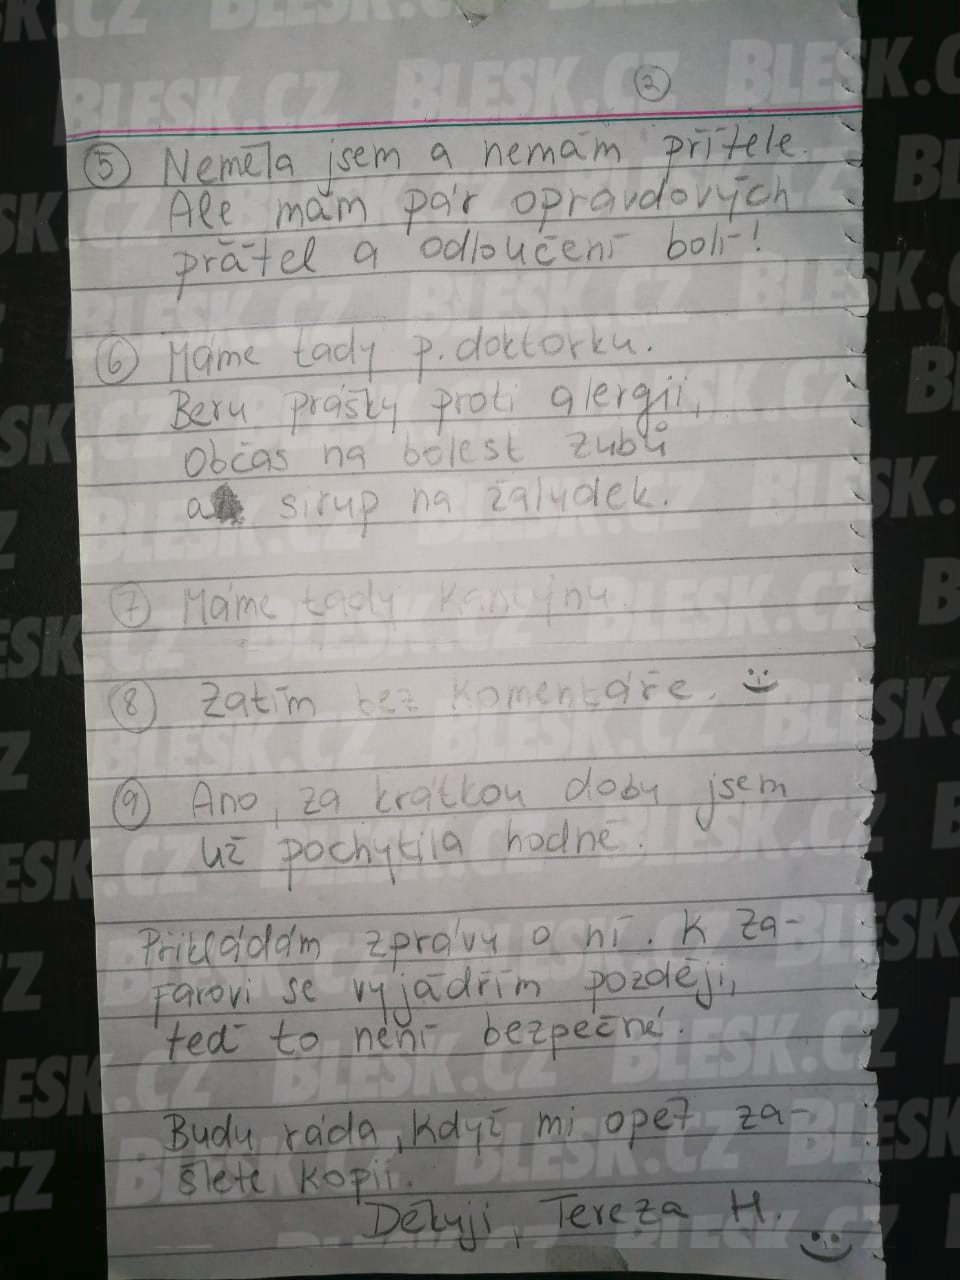 2
5 Neměla jsem a nemám přítele.
Ale mám pár opravdových
přátel a odloučení bolí!
6 Máme tady p. doktorku.
Beru prášky proti alergii,
občas na bolest zubů
a sirup na žaludek.
7 Máme tady kantýnu.
8 Zatím bez komentáře.
9 Ano, za krátkou dobu jsem
už pochytila hodně.
Přikládám zprávu o ní. K Za-
farovi se vyjádřím později,
teď to není bezpečné.
Budu ráda, když mi opět za-
šlete kopii.
Děkuji, Tereza H.
BLESK.CZ